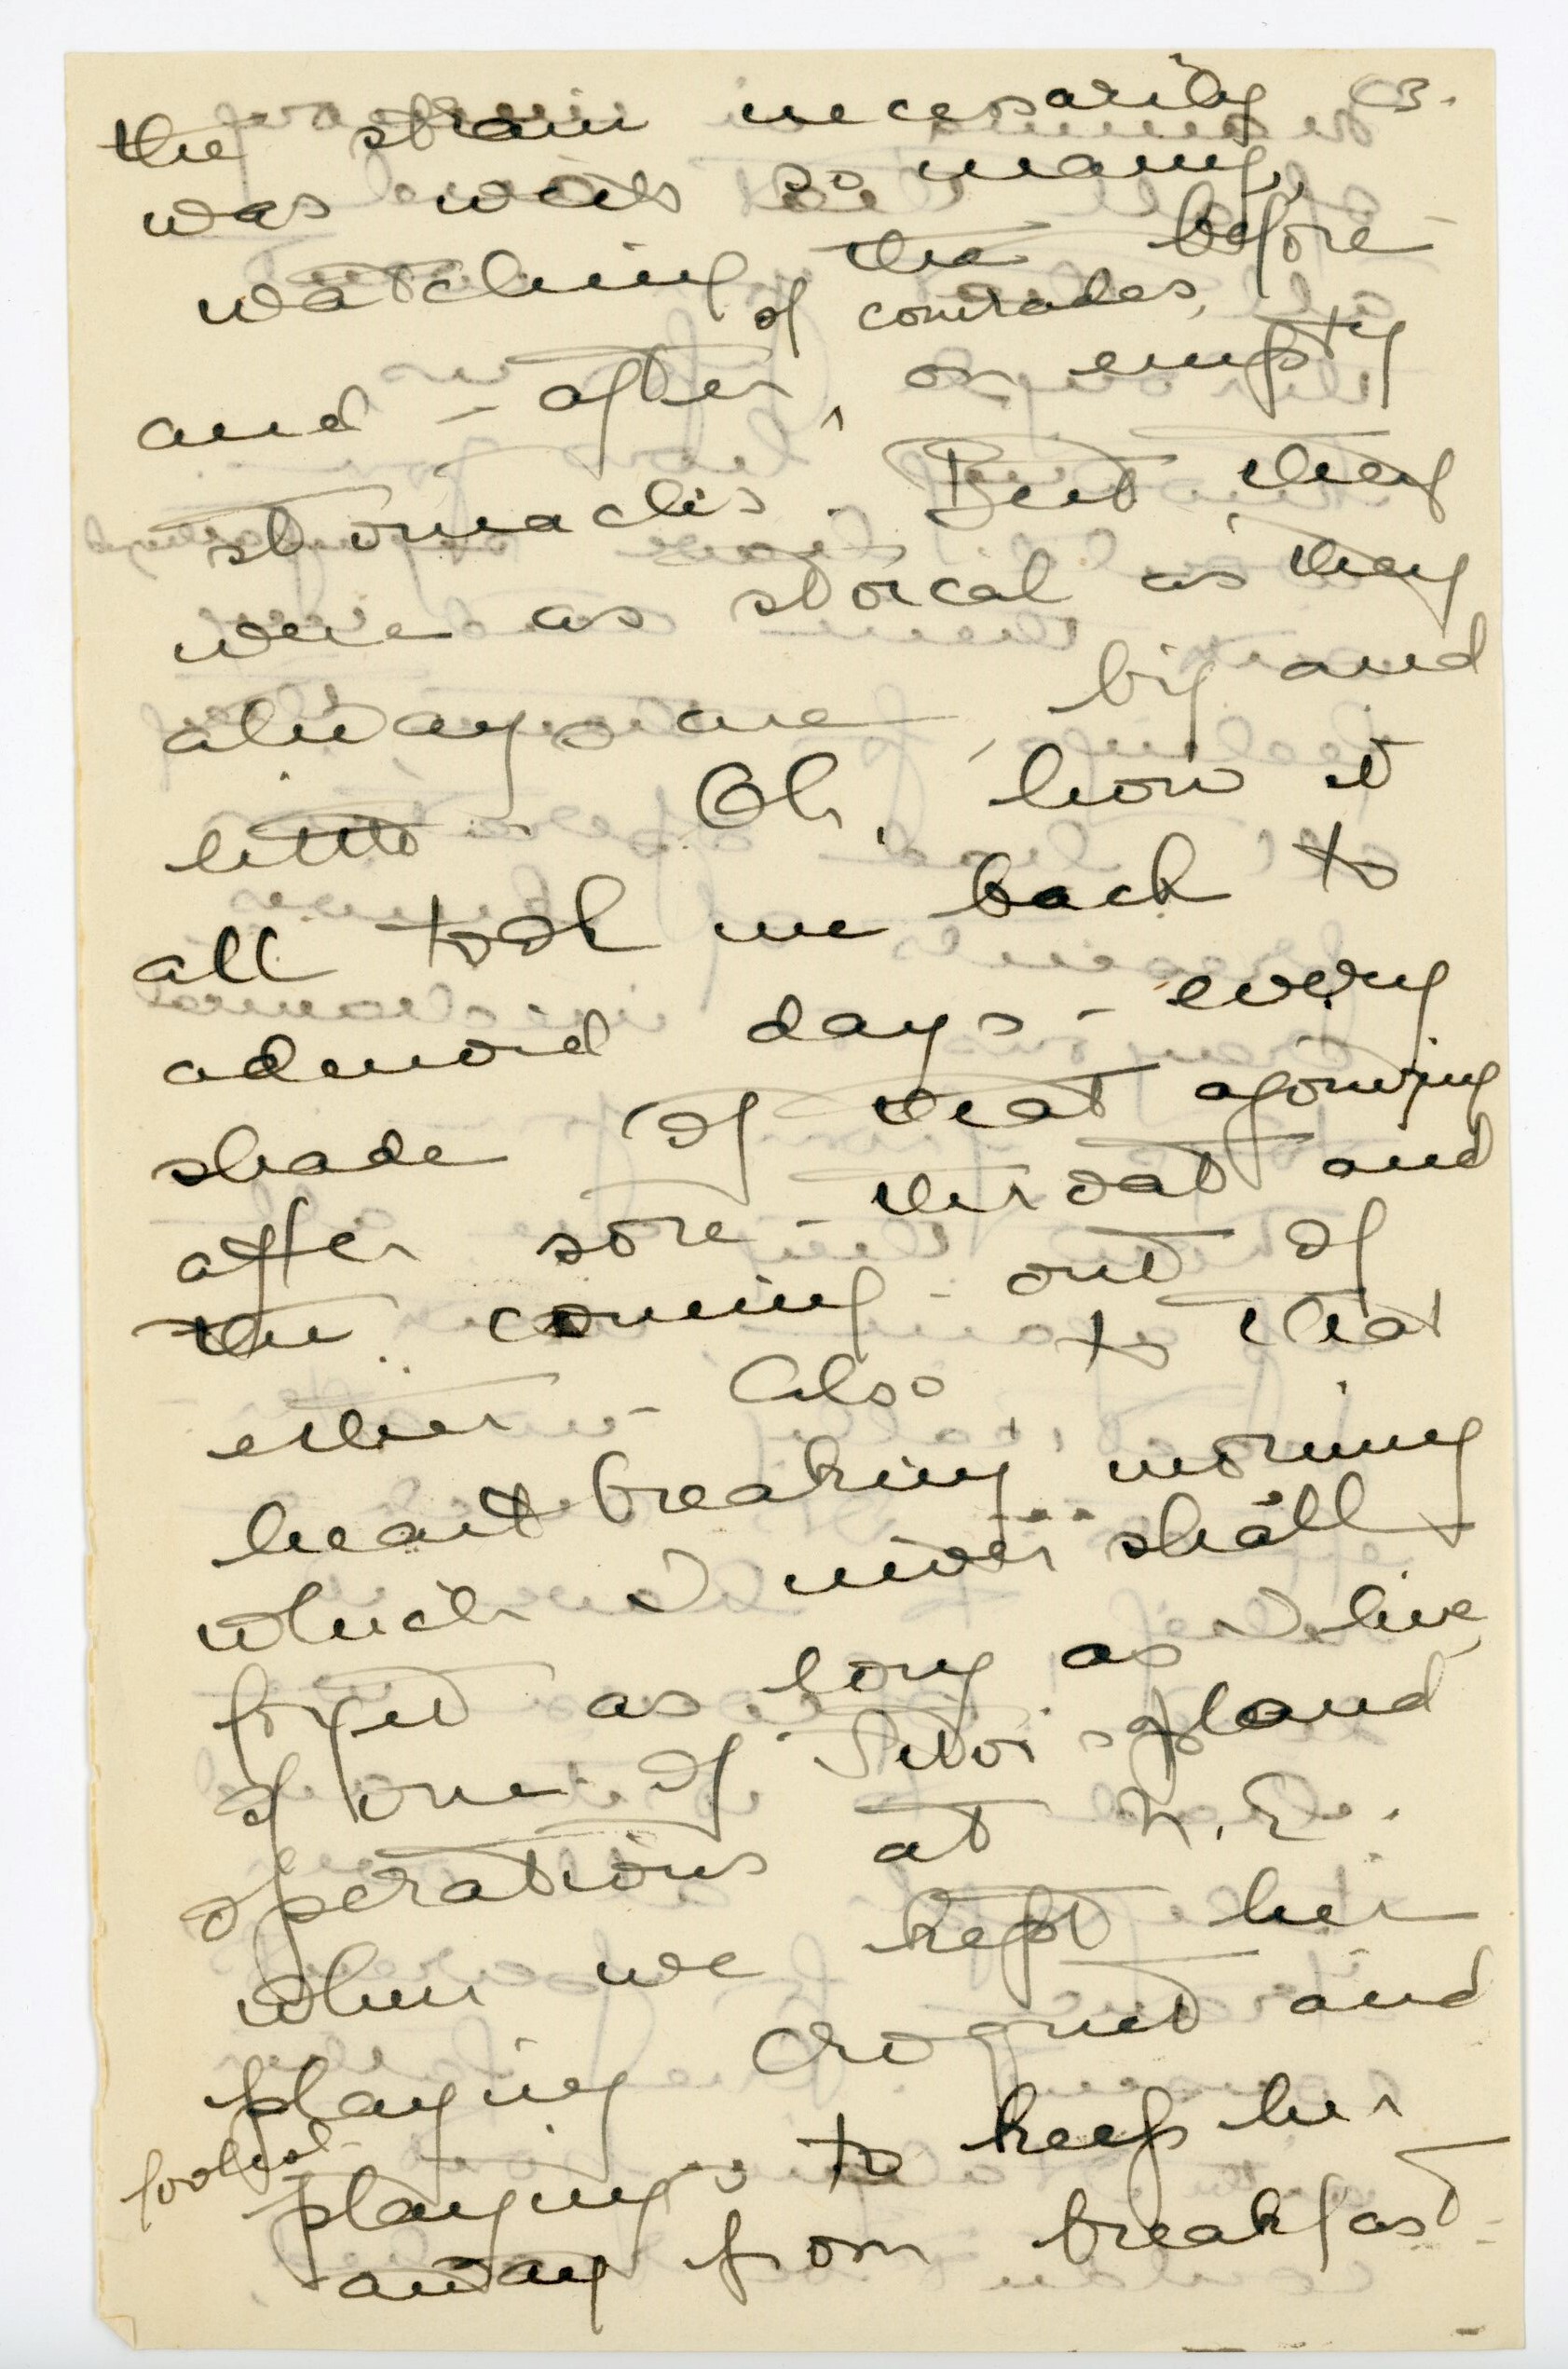 the strain necessarily (3.
was with so many,
watching the before
of comrades,
and - after ^ on empty
stomachs. But they
were as stoical as they
always are, big and
little. Oh, how it
all took me back to
adenoid days - every
shade of that agonizing
after sore-throat and
the coming-out of
ether - Also to that
heartbreaking morning
which I never shall
forget as long as I live,
of one of gland
operations at N.E.
when we kept her
playing croquet and
playing to keep her
away from breakfast -